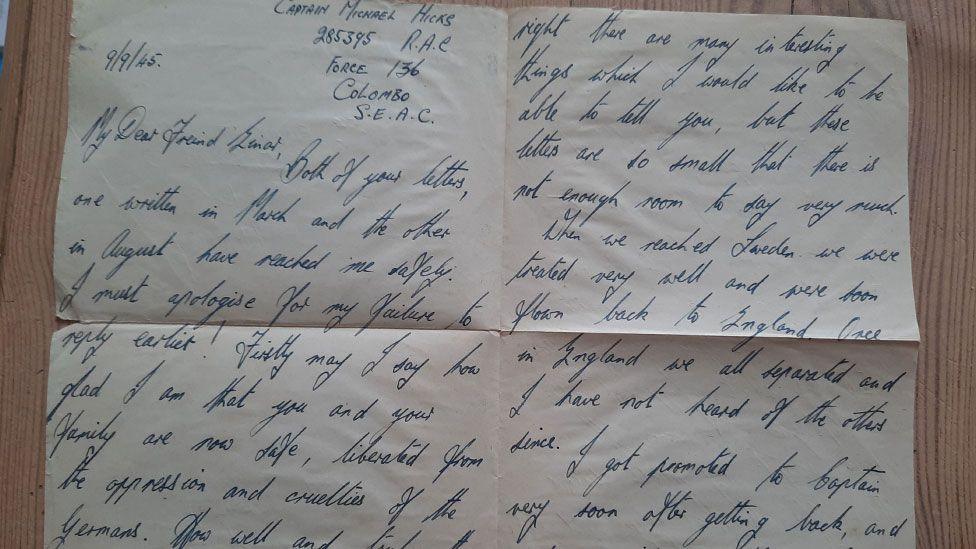 CAPTAIN MICHAEL HICKS
285395 R.A.C
9/9/45.
FORCE 136
COLOMBO
S.E.A.C.
My Dear Freind Einar,
Both of your letters,
one written in March and the other
in August have reached me safely.
I must apologise for my failure to
reply earlier! Firstly may I say how
glad I am that you and your
family are now safe, liberated from
the oppression and cruelties of the
Germans. How well and
right there are many interesting
things which I would like to be
able to tell you, but these
letters are so small that there is
not enough room to say very much.
When we reached Sweden we were
treated very well and were soon
flown back to England. Once
in England we all separated and
I have not heard of the others
since.
I got promoted to Captain
very soon after getting back, and